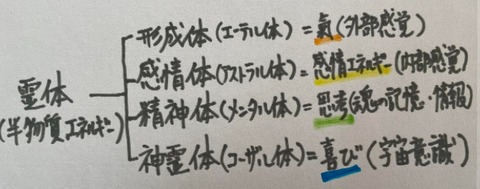 形成体(エーテル体)=氣(外部感覚)
感情体(アストラル体)=感情エネルギー(内部感覚)
霊体
精神体(メンタル体)=思考(魂の記憶・情報)
(半物質エネルギー)
神霊体(コーザル体)=喜び(宇宙意識)